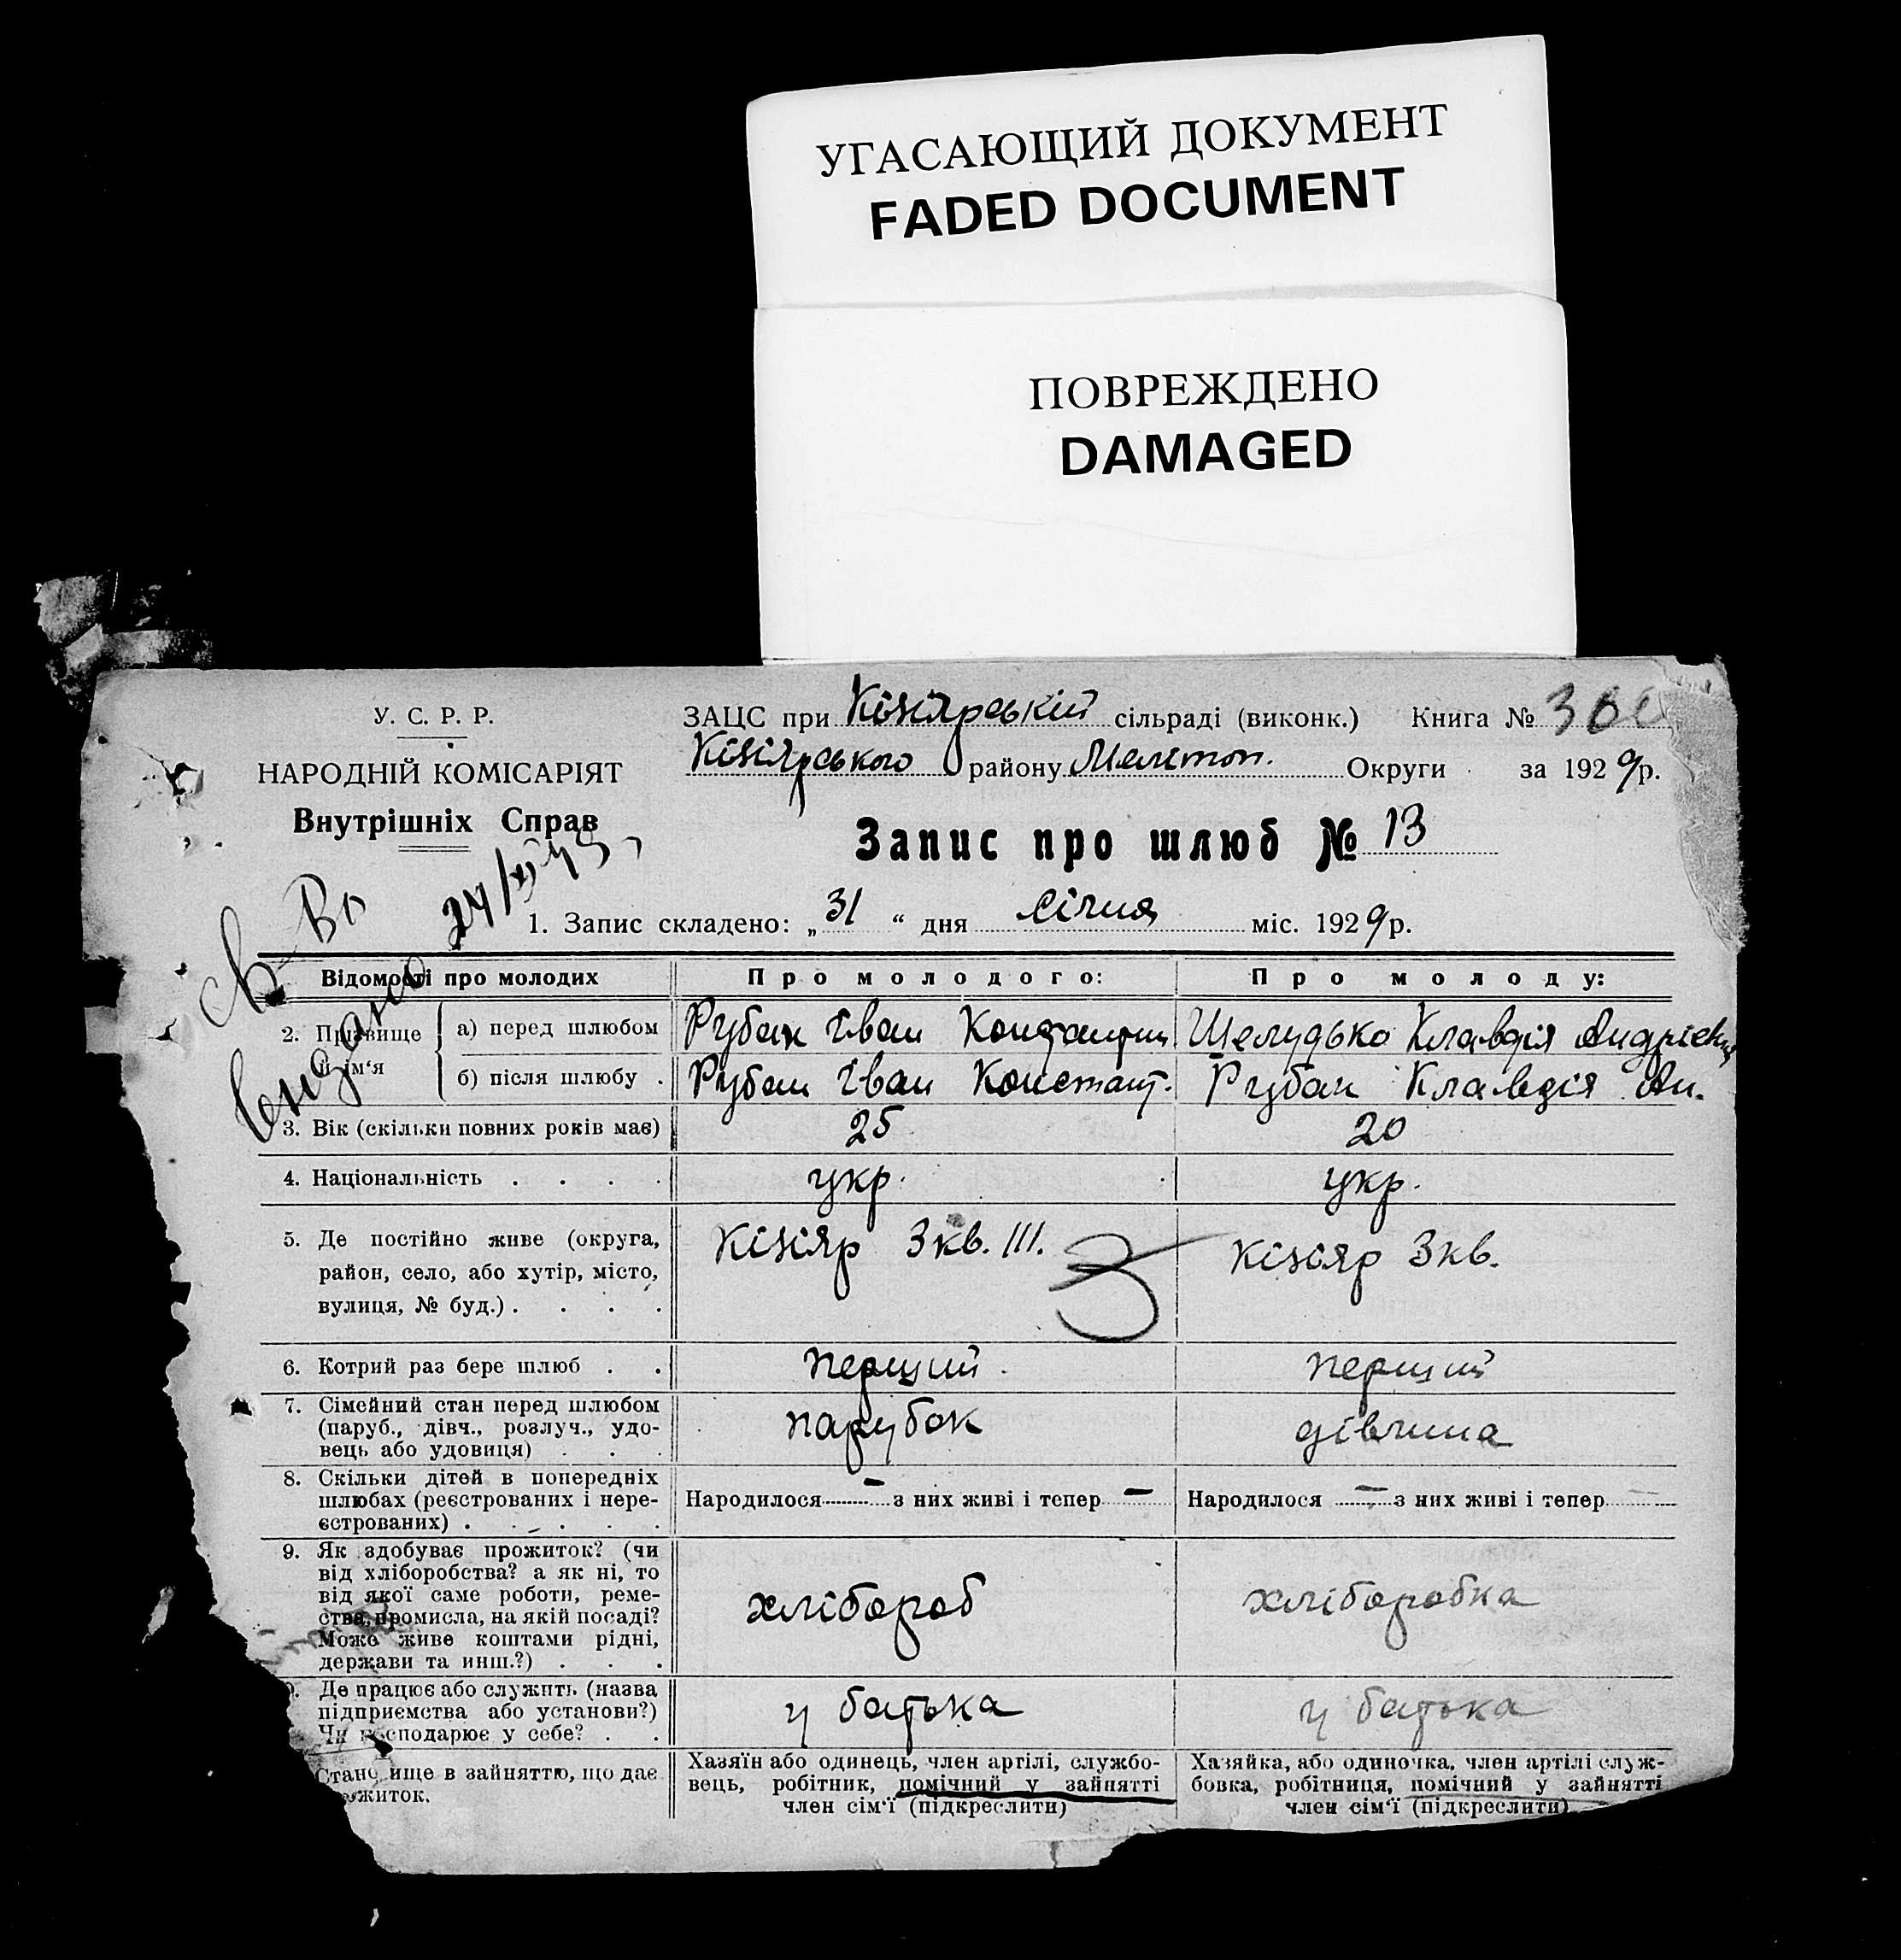 УГАСАЮЩИЙ ДОКУМЕНТ
FADED DOCUMENT
ПОВРЕЖДЕНО
DAMAGED
У. С. Р. Р.
НАРОДНІЙ КОМІСАРІЯТ
Внутрішніх Справ
ЗАЦС при Кізіярській сільраді (виконк.) Книга №
Кізіярського району Мелітоп. Округи за 1929 р.
Запис про шлюб № 13
1. Запис складено: „31“ дня січня міс. 1929 р.
видано
Відомості про молодих Про молодого: Про молоду:
2. Прізвище й ім‘я а) перед шлюбом Рубан Іван Шелудько Клавдія
б) після шлюбу . Рубан Іван Констант. Рубан Клавдія Ан.
3. Вік (скільки повних років має) 25 20
4. Національність . . . . укр. укр.
5. Де постійно живе (округа, район, село, або хутір, місто, вулиця, № буд.) . . . . Кізіяр 3 кв. III. Кізіяр 3 кв.
6. Котрий раз бере шлюб . . перший перший
7. Сімейний стан перед шлюбом (паруб., дівч., розлуч., удо-
вець або удовиця) . . . парубок дівчина
8. Скільки дітей в попередніх шлюбах (реєстрованих і нере-
єстрованих) . . . . . Народилося — з них живі і тепер — Народилося — з них живі і тепер —
9. Як здобуває прожиток? (чи
від хліборобства? а як ні, то
від якої саме роботи, реме-
ства, промисла, на якій посаді?
Може живе коштами рідні,
держави та инш.?) . . . хлібороб хліборобка
Де працює або служить (назва
підприємства або установи?)
Чи господарює у себе? . . у батька у батька
Становище в зайняттю, що дає
житок.
Хазяїн або одинець, член артілі, службо-
вець, робітник, помічний у зайнятті
член сім‘ї (підкреслити)
Хазяйка, або одиночка, член артілі служ-
бовка, робітниця, помічний у зайнятті
член сім‘ї (підкреслити)